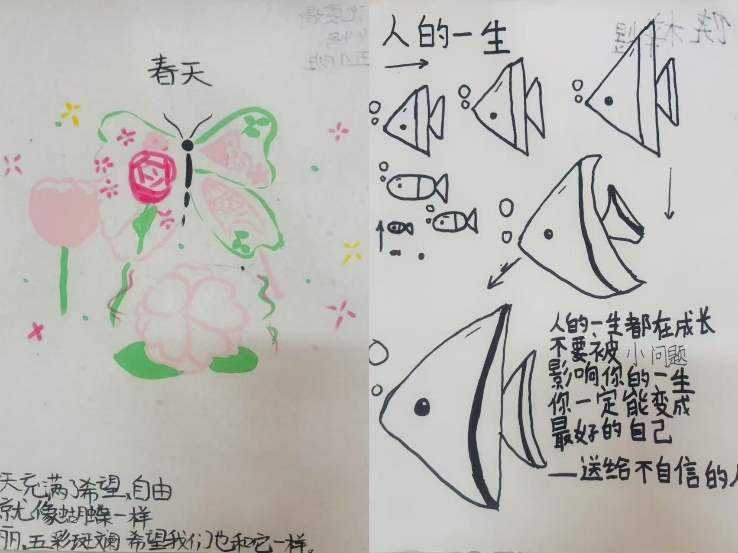 春天
天充满了希望,自由
就像蝴蝶一样
丽,五彩斑斓 希望我们也和它一样。
人的一生
人的一生都在成长
不要被小问题
影响你的一生
你一定能变成
最好的自己
——送给不自信的人